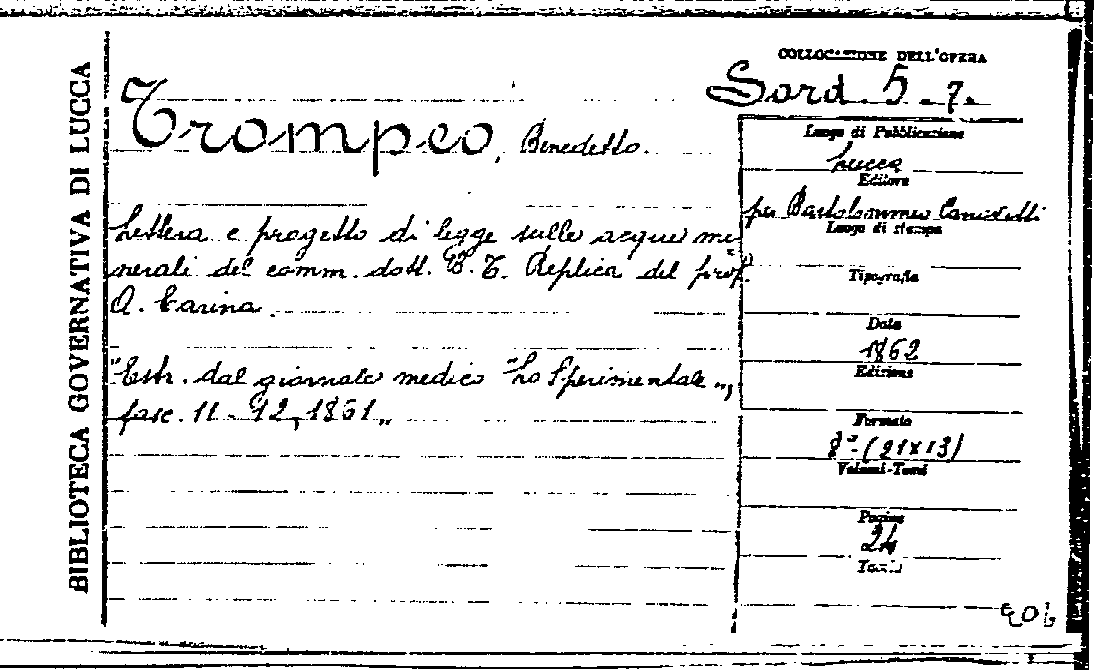 BIBLIOTECA GOVERNATIVA DI LUCCA
COLLOCAZIONE DELL'OPERA
Sard. 5 - 7.
Trompeo, Benedetto.
Lettera e progetto di legge sulle acque mi-
nerali del comm. dott. B. T. Replica del prof.
A. Carina.
"Estr. dal giornale medico "Lo Sperimentale",
fasc. 11 - 12, 1861"
Luogo di Pubblicazione
Lucca
Editore
per Bartolommeo Canovetti
Luogo di stampa
Tipografia
Data
1862
Edizione
Formato
8º - (21x13)
Volumi-Tomi
Pagine
24